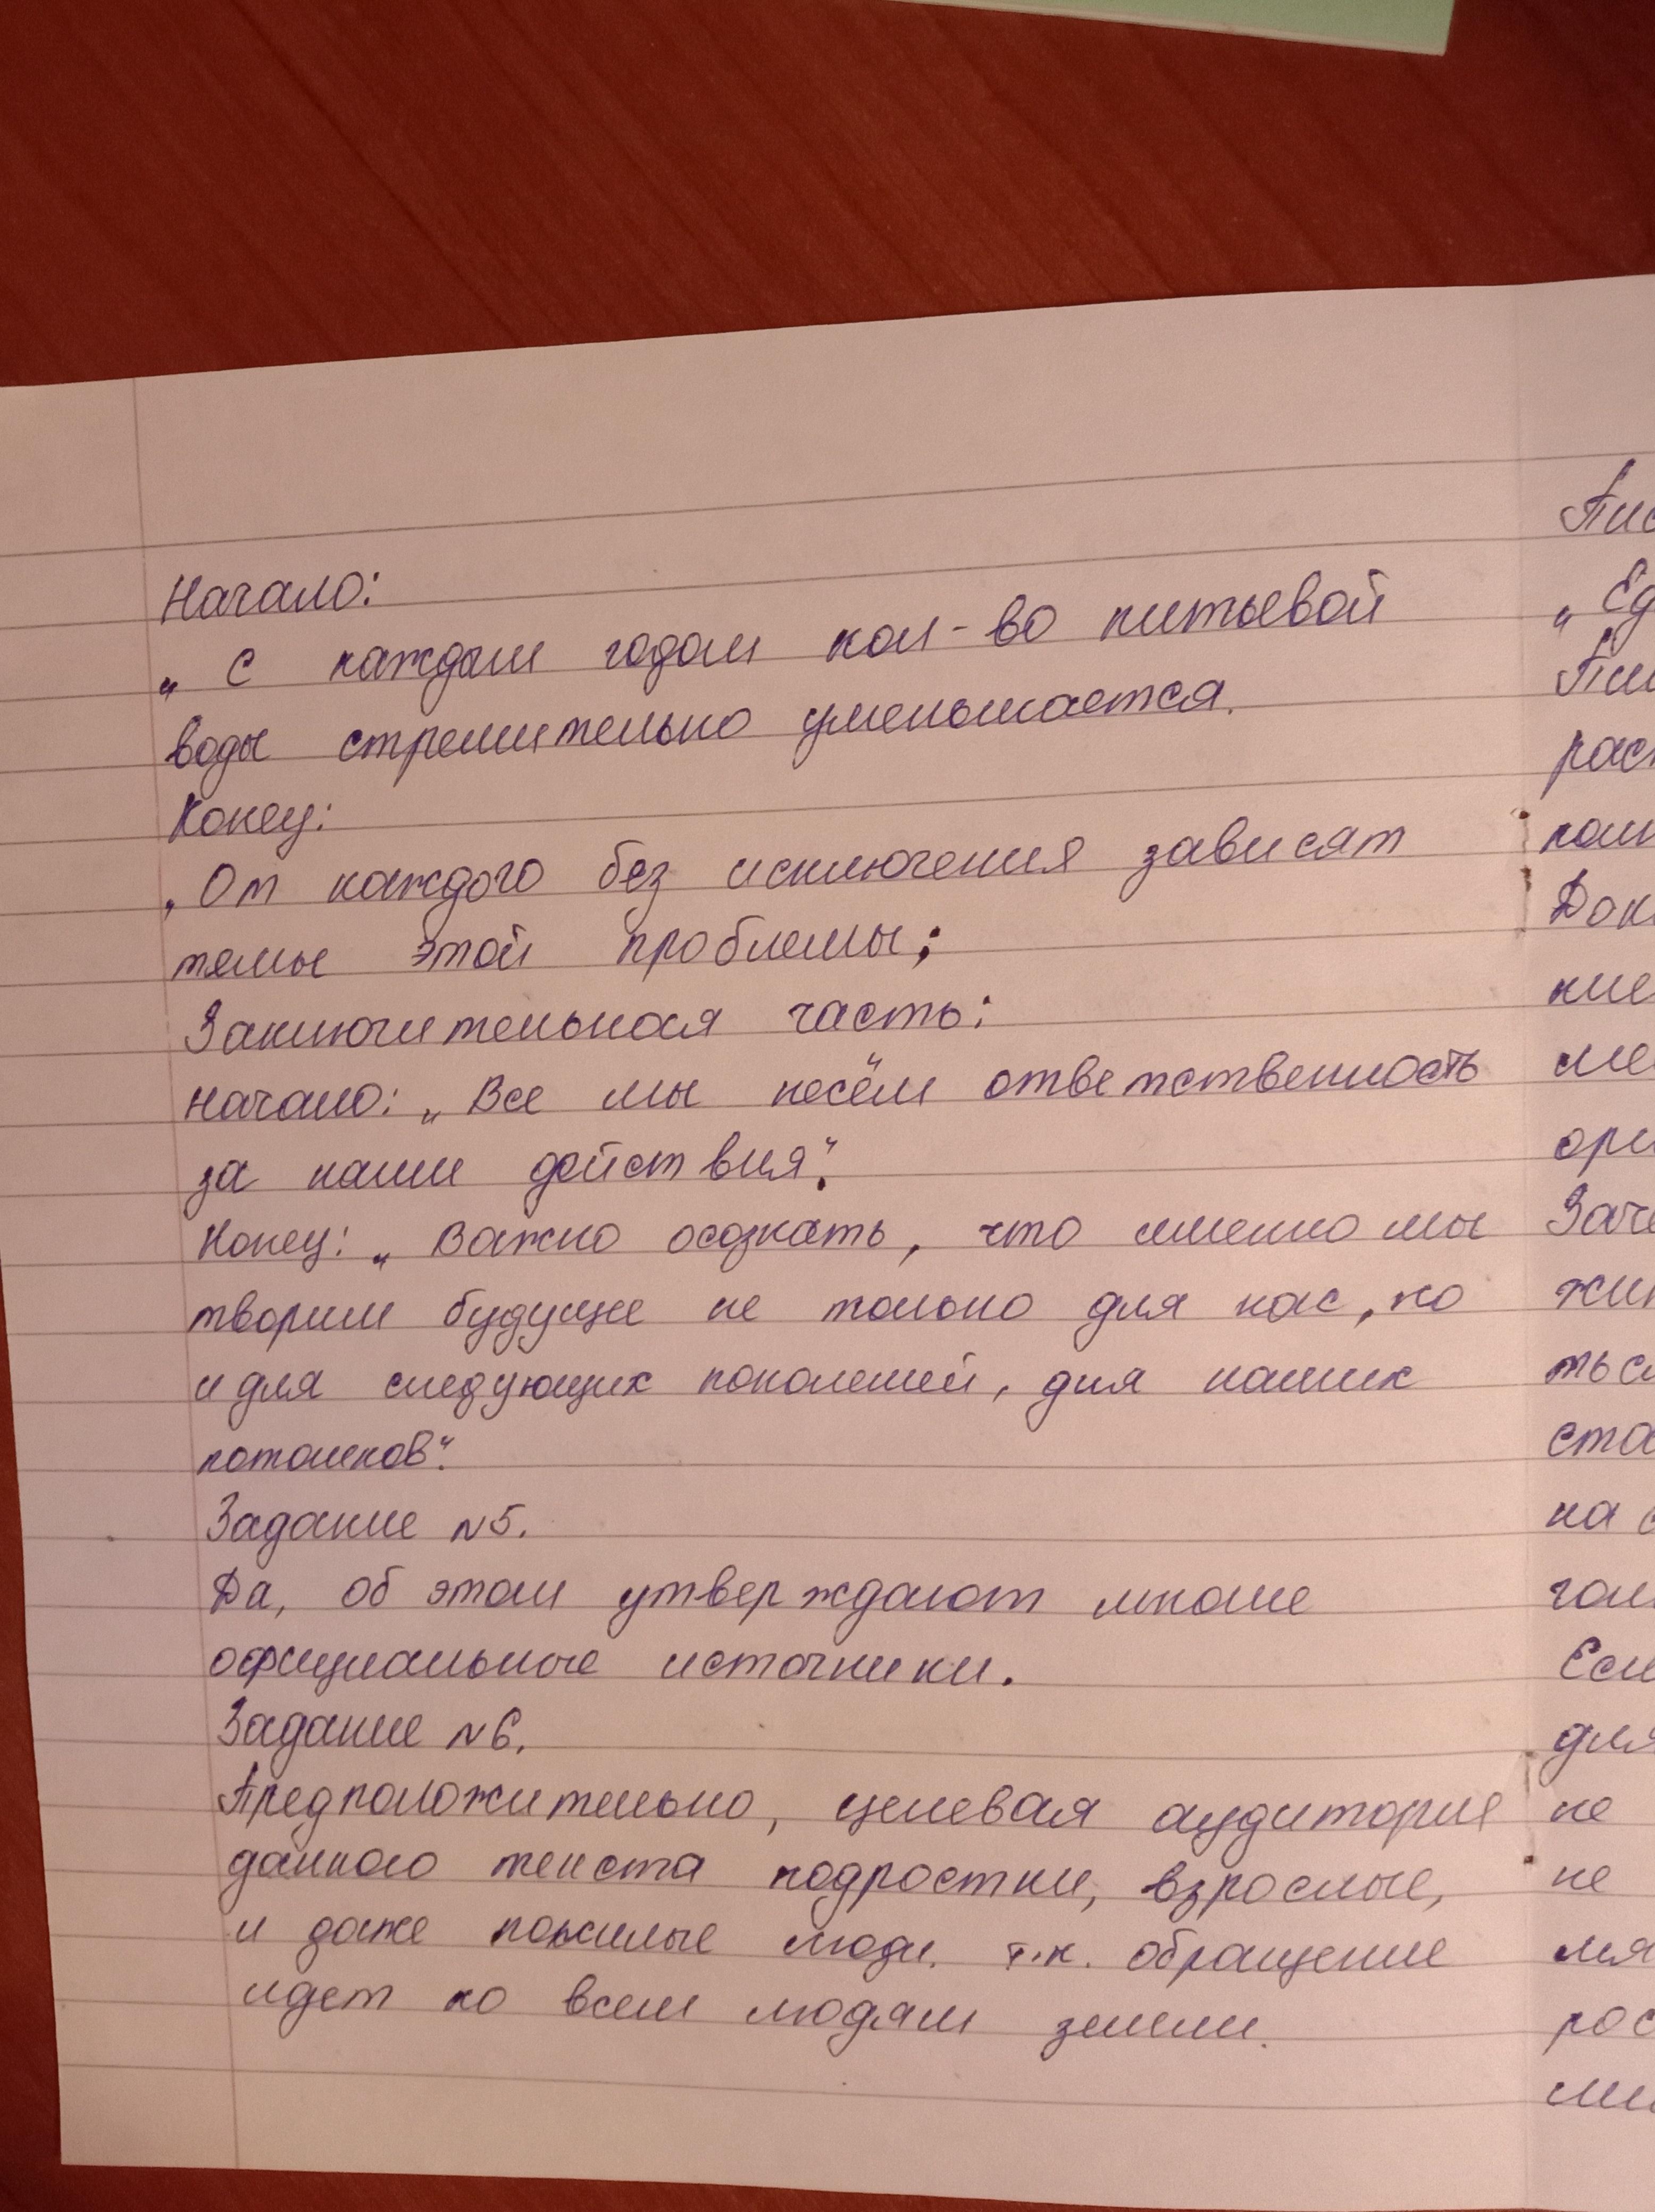 Начало:
„ С каждым годом кол-во питьевой
воды стремительно уменьшается.
Конец:
„От каждого без исключения зависят
темы этой проблемы;
Заключительная часть:
Начало: „ Все мы несём ответственность
за наши действия".
Конец: „ Важно осознать, что именно мы
творим будущее не только для нас, но
и для следующих поколений, для наших
потомков".
Задание №5.
Да, об этом утверждают многие
официальные источники.
Задание №6.
Предположительно, целевая аудитория
данного текста подростки, взрослые,
и даже пожилые люди. т.к. обращение
идет ко всем людям земли.
„ Ед
рас
Док
мен
Заче
жит
ться
ста
на с
Если
для
не
не
мя
рос